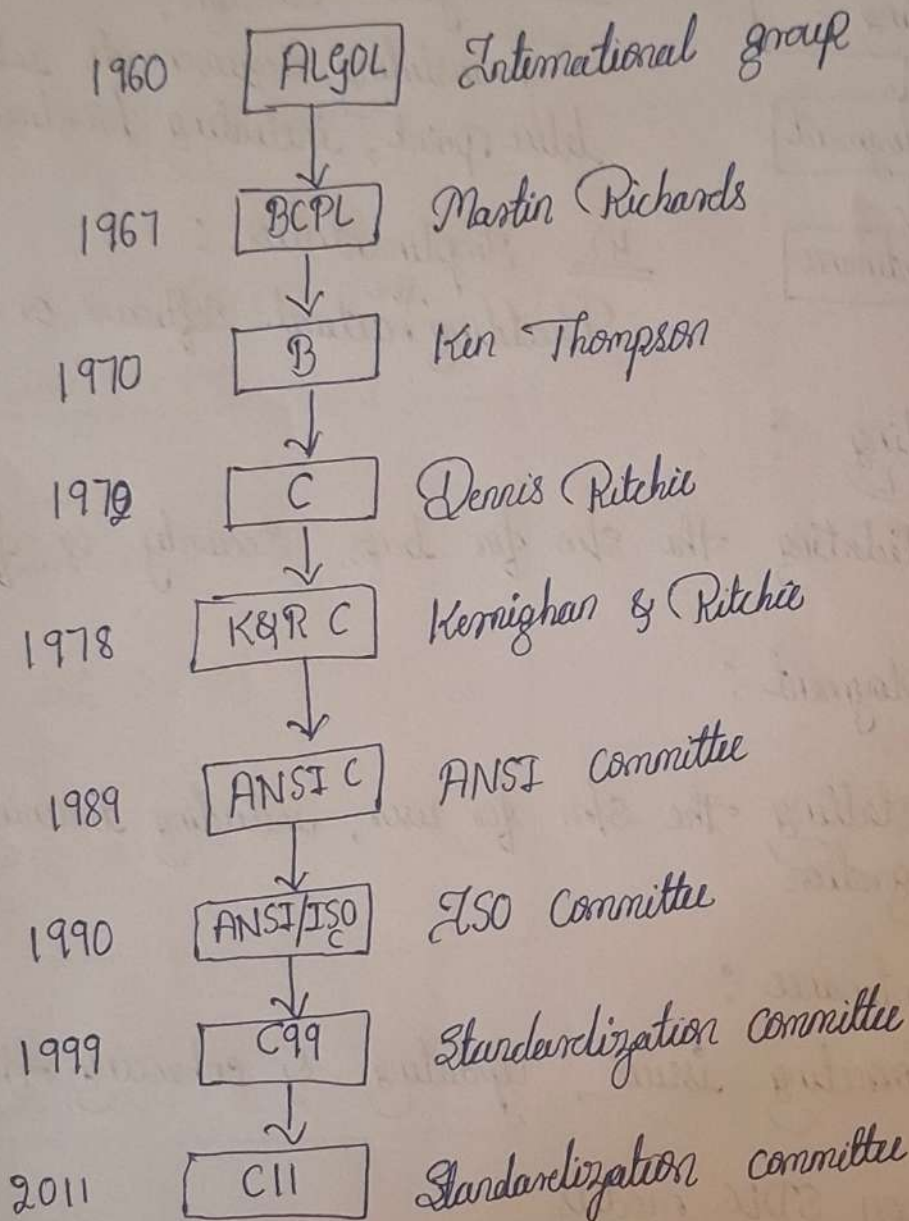 1960 ALGOL International group
1967 BCPL Martin Richards
1970 B Ken Thompson
1972 C Dennis Ritchie
1978 K&R C Kernighan & Ritchie
1989 ANSI C ANSI Committee
1990 ANSI/ISO C ISO Committee
1999 C99 Standardization Committee
2011 C11 Standardization committee